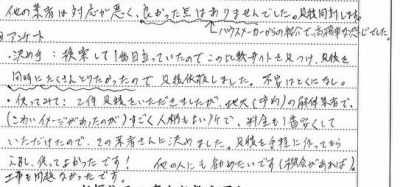 他の業者は対応が悪く、良かった点はありませんでした。見積同封します。
ハウスメーカーからの紹介で、高額な感じでした。
アンケート
・決め手:検索して1番目立っていたのでこの比較サイトを見つけ、見積を
同時にたくさんとりたかったので見積依頼しました。不安はとくになし。
・使ってみて:2件見積をいただきましたが、地元(市内)の解体業者で、
(こわいイメージがあったのが)すごく人柄もいい所で、料金も1番安くして
いただけたので、その業者さんに決めました。見積も手軽に作ってもら
えるし、使ってよかったです! 他の人にも勧めたいです(機会があれば)。
工事も問題なかったです。